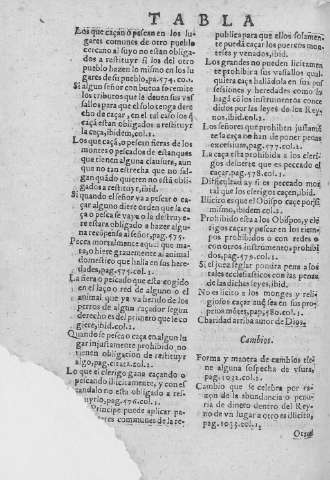 TABLA
Los que caçan o pescan en los lu
gares comunes de otro pueblo
cercano al suyo no estan obliga
dos a restituyr si los del otro
pueblo hazen lo mismo en los lu
gares de su pueblo, pa.574. co.1.
Si algun señor con buenas
los tributos que le deuen sus vas
sallos para que el solo tenga dere
cho de caçar, en tal caso los q̃
caçã estan obligados a restituyr
la caça, ibidem, col.1.
Los que caçã, o pescan fieras de los
montes o pescados de estanques
que tienen alguna clausura, aun
que no tan estrecha que no sal-
gan quãdo quieren no estã obli-
gados a restituyr, ibid.
Si quando el señor va a pescar o ca-
çar alguno diere orden que la ca
ça o pesca se vaya o la destruye-
re estara obligado a hazer algu-
na recõpensa al señor, pag.575.
Peca mortalmente aquel que ma-
ta, o hiere grauemente al animal
domestico que halla en sus here-
dades, pag.575. col.1.
La fiera o pescado que esta cogido
en el lazo o red de alguno o el
animal que ya va herido de los
perros de algun caçador segun
derecho es del primero que le co
giere, ibid. col.1.
Quando se pesca o caça en algun lu
gar injustamente prohibido, no
tienen obligacion de restituyr
algo, pag. citata. col.2.
Lo que el clerigo gana caçando o
pescando illicitamente, y con es
candalo no esta obligado a resti
tuyrlo, pag.576. col.1.
Principe puede aplicar pa-
comunes de la re-
publica para que ellos solamen-
te pueda caçar los puercos mon-
teses y venados, ibid.
Los grandes no pueden licitamen
te prohibir a sus vassallos qual-
quiera caça hallandola en sus pos
sessiones y heredades como lo
haga cõ los instrumentos conce
didos por las leyes de los Rey-
nos, ibid. col.1.
Los señores que prohiben justamẽ
te la caça no han de poner penas
excessiuas, pag.577. col.1.
La caça esta prohibida a los cleri-
gos deberte que es peccado el
caçar, pag.578. col.1.
Difficultad ay si es peccado mor-
tal que los clerigos caçen, ibid.
Illicito es que el Obispo caçe por si
mismo, ibidem col.1.
Prohibido esta a los Obispos, y cle-
rigos caçar y pescar en los tiem-
pos prohibidos o con redes o
con otros instrumentos prohibi-
dos, pag.579. col.1.
Si el juez seglar pondra pena a los
tales ecclesiasticos con las penas
de las dichas leyes, ibid.
No es licito a los monges y reli-
giosos caçar aunq̃ sea en sus pro
prios mõtes, pag.580. col.1.
Charidad arriba amor de Dios.
Cambios.
Forma y manera de cambios tie-
ne alguna sospecha de vsura,
pag.1021. col.1.
Cambio que se celebra por ra-
zon de la abundancia o penu-
ria de dinero dentro del Rey-
no de vn lugar a otro es illicito,
pag.1033. col.1.